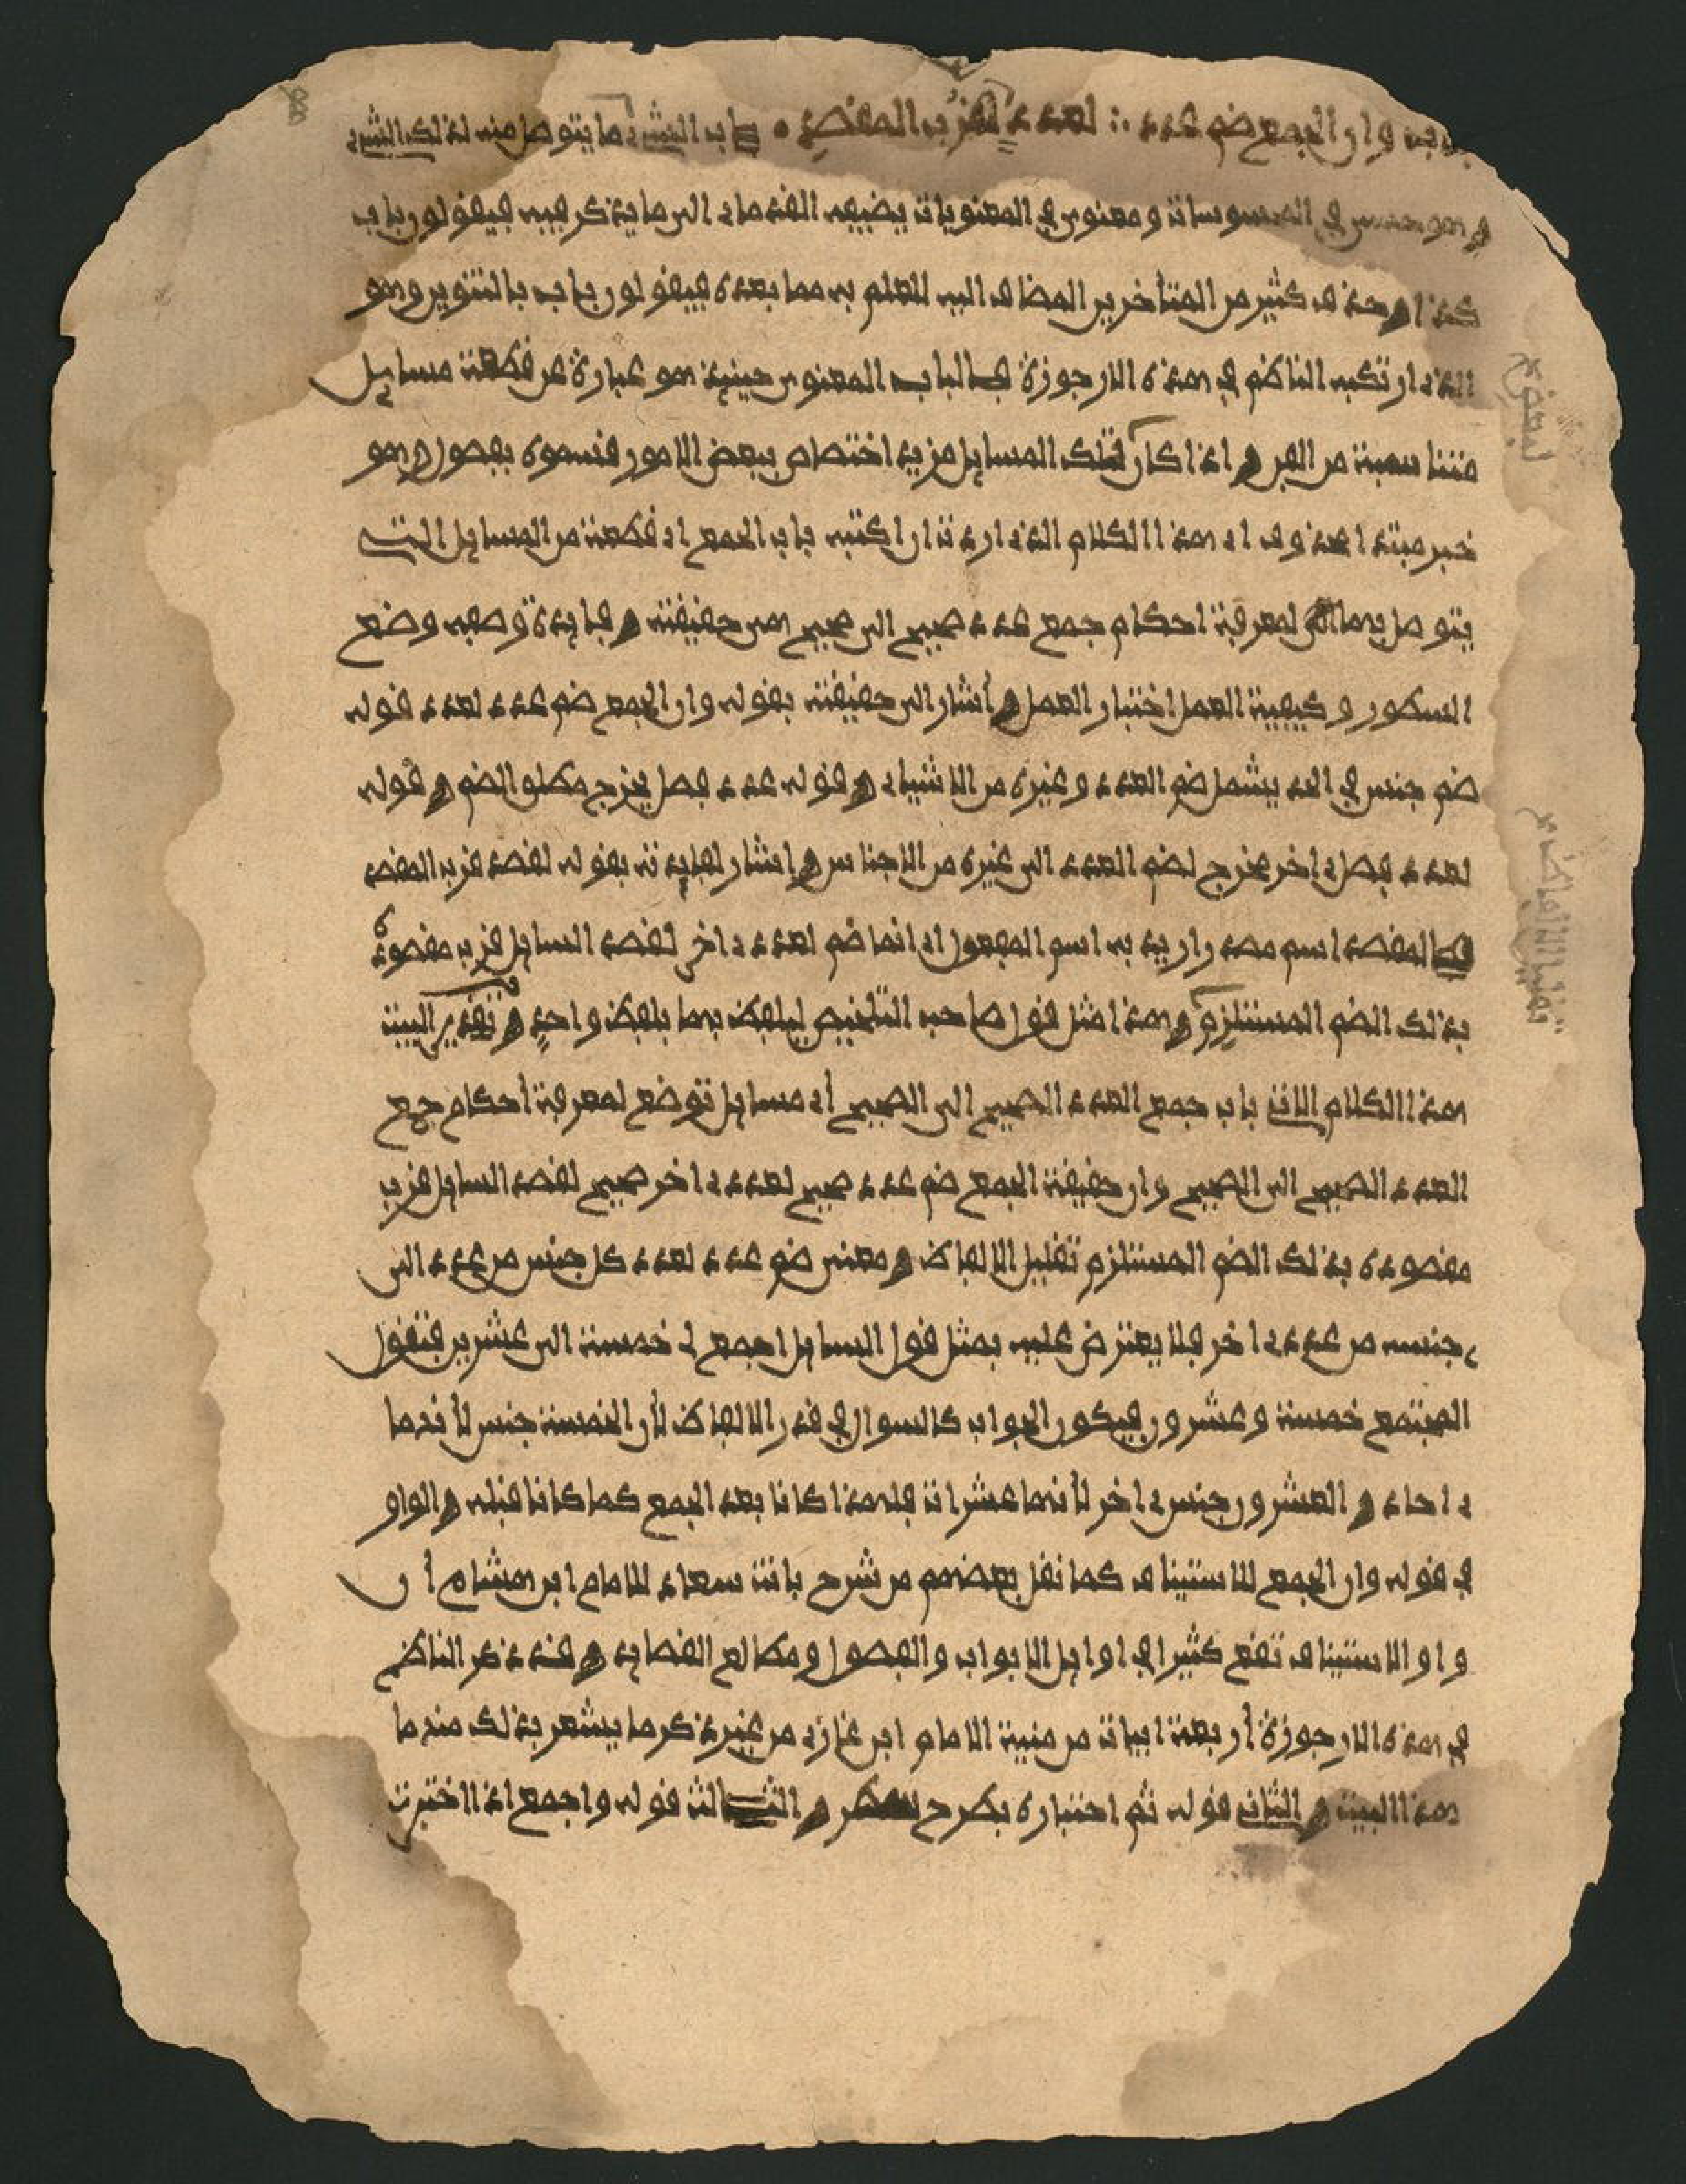 باب وان الجمع ضم عدد ∴ لعدد لقرب المقصد • باب الشيء ما يتوصل منه لذلك الشيء
وهو حسي في المحسوسات ومعنوي في المعنويات يضيفه القدماء الى ما يذكر فيه فيقولون باب
كذا وحذف كثير من المتأخرين المضاف اليه للعلم به مما بعده فيقولون باب بالتنوين وهو
الذي ارتكبه الناظم في هذه الارجوزة فالباب المعنوي حينئذ هو عبارة عن قطعة مسايل
متناسبة من الفن واذا كان لتلك المسايل مزيد اختصاص ببعض الامور فسموه بفصل وهو
خبر مبتدا محذوف اي هذا الكلام الذي اردت ان اكتبه باب الجمع اي قطعة من المسايل التي
يتوصل بها لمعرفة احكام جمع عدد صحيح الى صحيح هي حقيقته وفايدته وصفة وضع
السطور وكيفية العمل اختبار العمل وأشار الى حقيقته بقوله وان الجمع ضم عدد لعدد قوله
ضم جنس في الحد يشمل ضم العدد وغيره من الاشياء وقوله عدد فصل يخرج مطلق الضم وقوله
لعدد فصل اخر يخرج لضم العدد الى غيره من الاجناس واشار لفايدته بقوله لقصد قرب المقصد
فالمقصد اسم مصدر اريد به اسم المفعول اي انما ضم لعدد اخر لقصد السايل قرب مقصوده
بذلك الضم المستلزم وهذا مثل قول صاحب التلخيص ليلفظ بهما بلفظ واحد وتقدير البيت
هذا الكلام الات باب جمع العدد الصحيح الى الصحيح أي مسايل توضع لمعرفة أحكام جمع
العدد الصحيح الى الصحيح وان حقيقة الجمع ضم عدد صحيح لعدد اخر صحيح لقصد السايل قرب
مقصوده بذلك الضم المستلزم تقليل الالفاظ ومعنى ضم عدد لعدد كل جنس من عدد الى
جنسه من عدد اخر فلا يعترض عليه بمثل قول السايل اجمع لي خمسة الى عشرين فتقول
المجتمع خمسة وعشرون فيكون الجواب كالسوال في قدر الالفاظ لأن الخمسة جنس لأنها
احاد والعشرون جنس اخر لأنها عشرات فلهذا كانا بعد الجمع كما كانا قبله والواو
في قوله وان الجمع للاستيناف كما نقل بعضهم من شرح بانت سعاد للامام ابن هشام أن
واو الاستيناف تقع كثيرا في اوايل الابواب والفصول ومطالع القصايد وقد ذكر الناظم
في هذه الارجوزة أربعة ابيات من منية الامام ابن غازي من غير ذكر ما يشعر بذلك منها
هذا البيت والثاني قوله ثم اختباره بطرح والثالث قوله واجمع اذا اختبرت
لبعض
تقليل الالفاظ